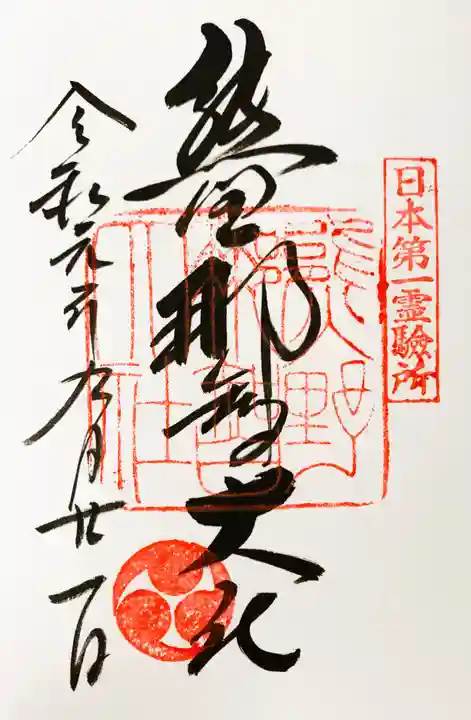 日本第一霊験所
熊野那智大社
熊野那智大社
令和元年九月廿一日